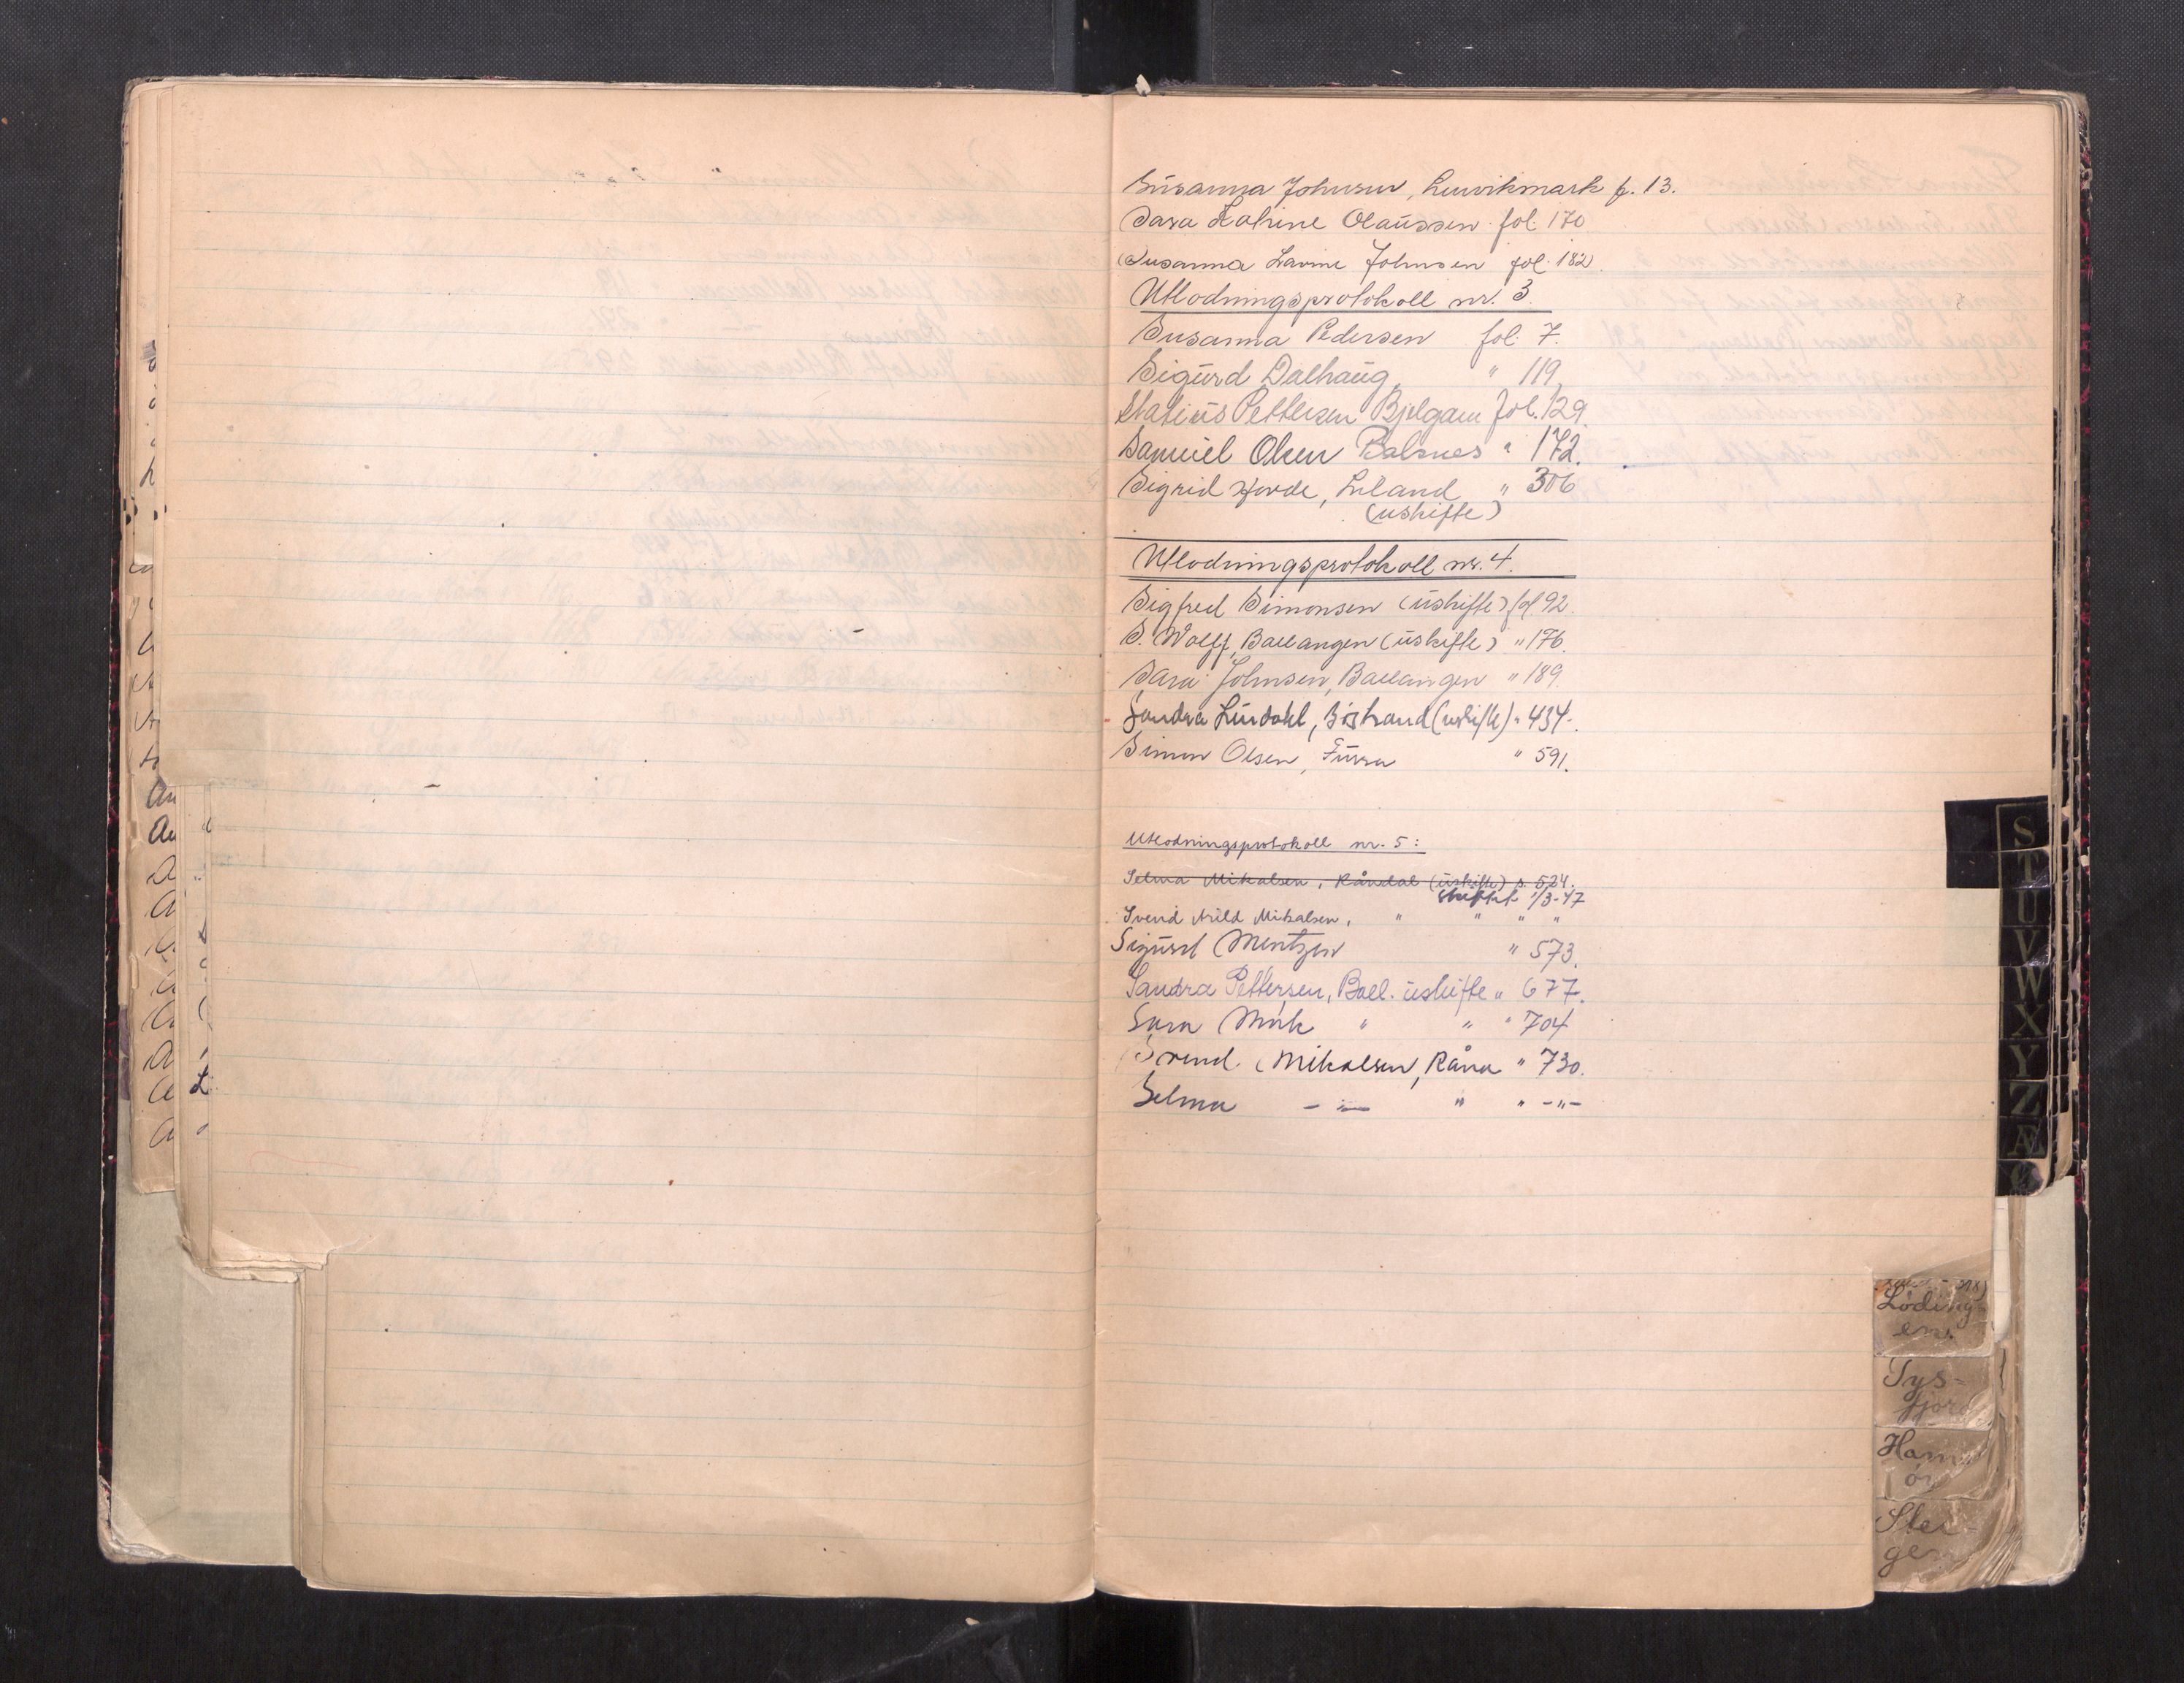 Susanna Johnsen, Lenvikmark p. 13.
Sara Katrine Olaussen fol. 170
Susanna Lavine Johnsen fol. 182
Utlodningsprotokoll nr. 3.
Susanna Pedersen fol. 7.
Sigurd Dalhaug, " 119
Statius Pettersen Bjelgam fol. 129.
Samuel Olsen Balsnes " 172.
Sigrid Hovde, Liland " 306
(uskifte)
Utlodningsprotokoll nr. 4.
Sigfred Simonsen (uskifte) fol 92.
S. Wolff, Ballangen (uskifte) " 176.
Sara Johnsen, Ballangen " 189.
Sandra Lindahl, (uskifte) " 434.
Simon Olsen, Furra " 591.
Utlodningsprotokoll nr. 5:
Selma Mikalsen, Råndal (uskifte) s. 524.
skiftet 1/3-47
Svend Arild Mikalsen, " " " "
Sigurd Mentzen " 573.
Sandra Pettersen, Ball. uskifte " 677.
Sara Mørk " " " 704
Svend Mikalsen, Råna " 730.
Selma -"- " " -"-
S
T
U
V
W
X
Y
Z
Æ
Ø
Löding-
en.
Tys-
fjord
Ham
ör
Stei-
gen